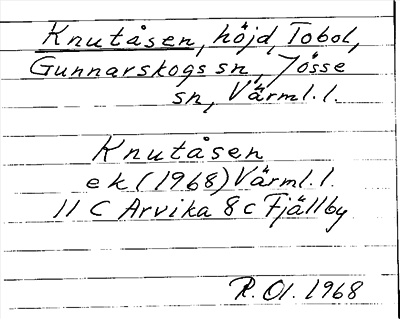 Knutåsen, höjd, Tobol,
Gunnarskogs sn, Jösse
sn, Värml. l.
Knutåsen
ek (1968) Värml. l.
11 C Arvika 8 c Fjällby
R. Ol. 1968